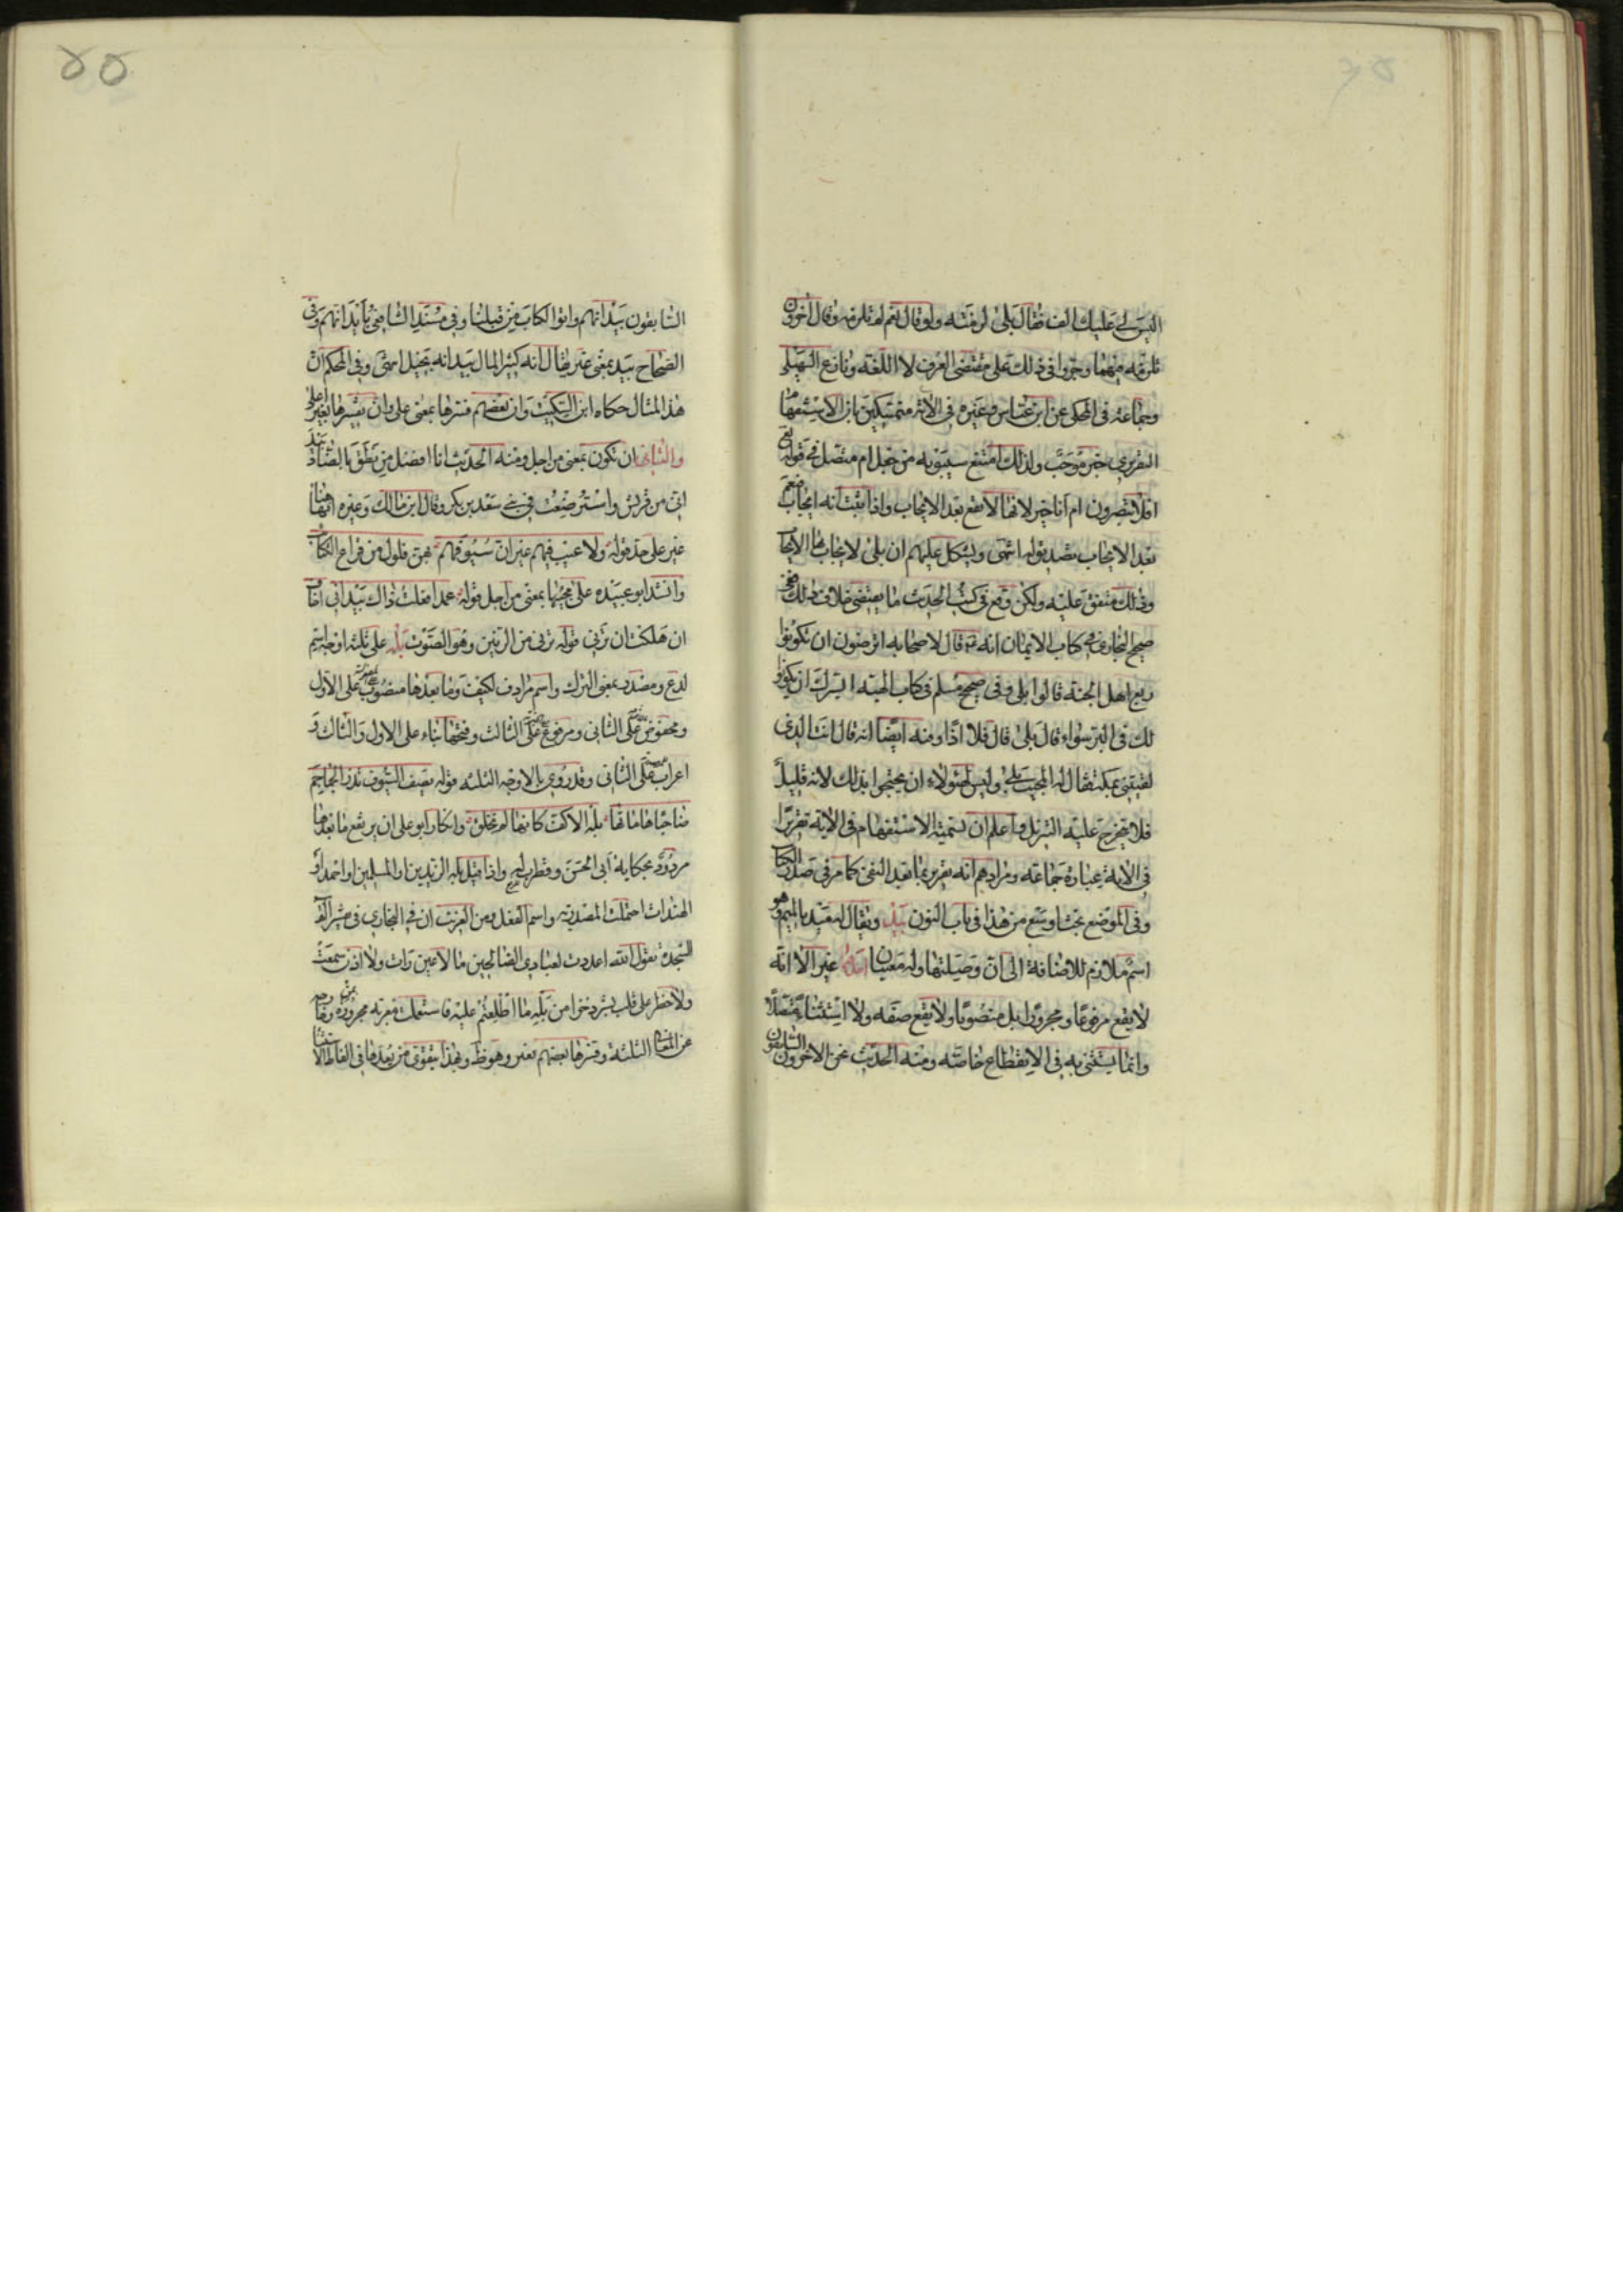 اليس لي عليك الف فقال بلى لزمته ولو قال نعم لم تلزمه وقال آخرون
تلزمه فيهما وجروا في ذلك على مقتضى العرف لا اللغة ونازع السهيلي
وجماعة في المحكي عن ابن عباس وغيره في الآية متمسكين بان الاستفهام
التقريري خبر موجب ولذلك امتنع سيبويه من جعل ام متصلة في قوله تع
افلا تبصرون ام انا خير لانها لا تقع بعد الايجاب واذا ثبت انه ايجاب فنعم
بعد الايجاب تصديق له انتهى ويشكل عليهم ان بلى لا يجاب بها الايجاب
وذلك متفق عليه ولكن وقع في كتب الحديث ما يقتضي خلاف ذلك ففي
صحيح البخاري في كتاب الايمان انه قال لاصحابه اترضون ان تكونوا
ربع اهل الجنة قالوا بلى وفي صحيح مسلم في كتاب الهبة ايسرك ان يكونوا
لك في البر سواء قال بلى قال فلا اذا وفيه ايضا انه قال انت الذي
لقيتني بمكة فقال له المجيب بلى وليس لهؤلاء ان يحتجوا بذلك لانه قليل
فلا يتخرج عليه التنزيل واعلم ان تسمية الاستفهام في الآية تقريرا
في الآية عبارة جماعة ومرادهم انه تقرير بما بعد النفي كما مر في صدر الكتاب
وفي الموضع بحث اوسع من هذا في باب النون بيد ويقال ميد بالميم وهو
اسم ملازم للاضافة الى انّ وصلتها وله معنيان احدهما غير الا انه
لا يقع مرفوعا ومجرورا بل منصوبا ولا يقع صفة ولا استثناء متصلا
وانما يستثنى به في الانقطاع خاصة ومنه الحديث نحن الآخرون السابقون
السابقون بيد انهم اوتوا الكتاب من قبلنا وفي مسند الشافعي بأيد انهم وفي
الصحاح بيد بمعنى غير يقال انه كثير المال بيد انه بخيل انتهى وفي المحكم ان
هذا المثال حكاه ابن السكيت وان بعضهم فسرها بمعنى على وان تفسيرها بغير اعلى
والثاني ان تكون بمعنى من اجل ومنه الحديث انا افصح من نطق بالضاد بيد
اني من قريش واسترضعت في بني سعد بن بكر وقال ابن مالك وغيره انها هنا
غير على حد قوله ولا عيب فيهم غير ان سيوفهم بهن فلول من قراع الكتائب
وانشد ابو عبيدة على مجيئها بمعنى من اجل قوله عمدا فعلت ذاك بيد اني اخاف
ان هلكت ان ترني قوله ترني من الرنين وهو الصوت بله على ثلثة اوجه اسم
لدع ومصدر بمعنى الترك واسم مرادف لكيف وما بعدها منصوب على الاول
ومخفوض على الثاني ومرفوع على الثالث وفتحها بناء على الاول والثالث و
اعراب على الثاني وقد روي بالاوجه الثلثة قوله يصف السيوف تذر الجماجم
ضاحيا هاماتها بله الاكف كانها لم تخلق وانكار ابو علي ان يرتفع ما بعدها
مردود بحكاية ابي الحسن وقطرب له واذا قيل بله الزيدين او المسلمين او احمد او
الهندات احتملت المصدرية واسم الفعل ومن الغريب ان في البخاري في تفسير الم
السجدة يقول الله اعددت لعبادي الصالحين ما لا عين رات ولا اذن سمعت
ولا خطر على قلب بشر ذخرا من بله ما اطلعتم عليه فاستعملت معربة مجرورة بمن وخارجة
عن المعاني الثلثة وفسرها بعضهم بغير وهو ظ وبهذا يتقوى من يعدها في الفاظ الاستثناء